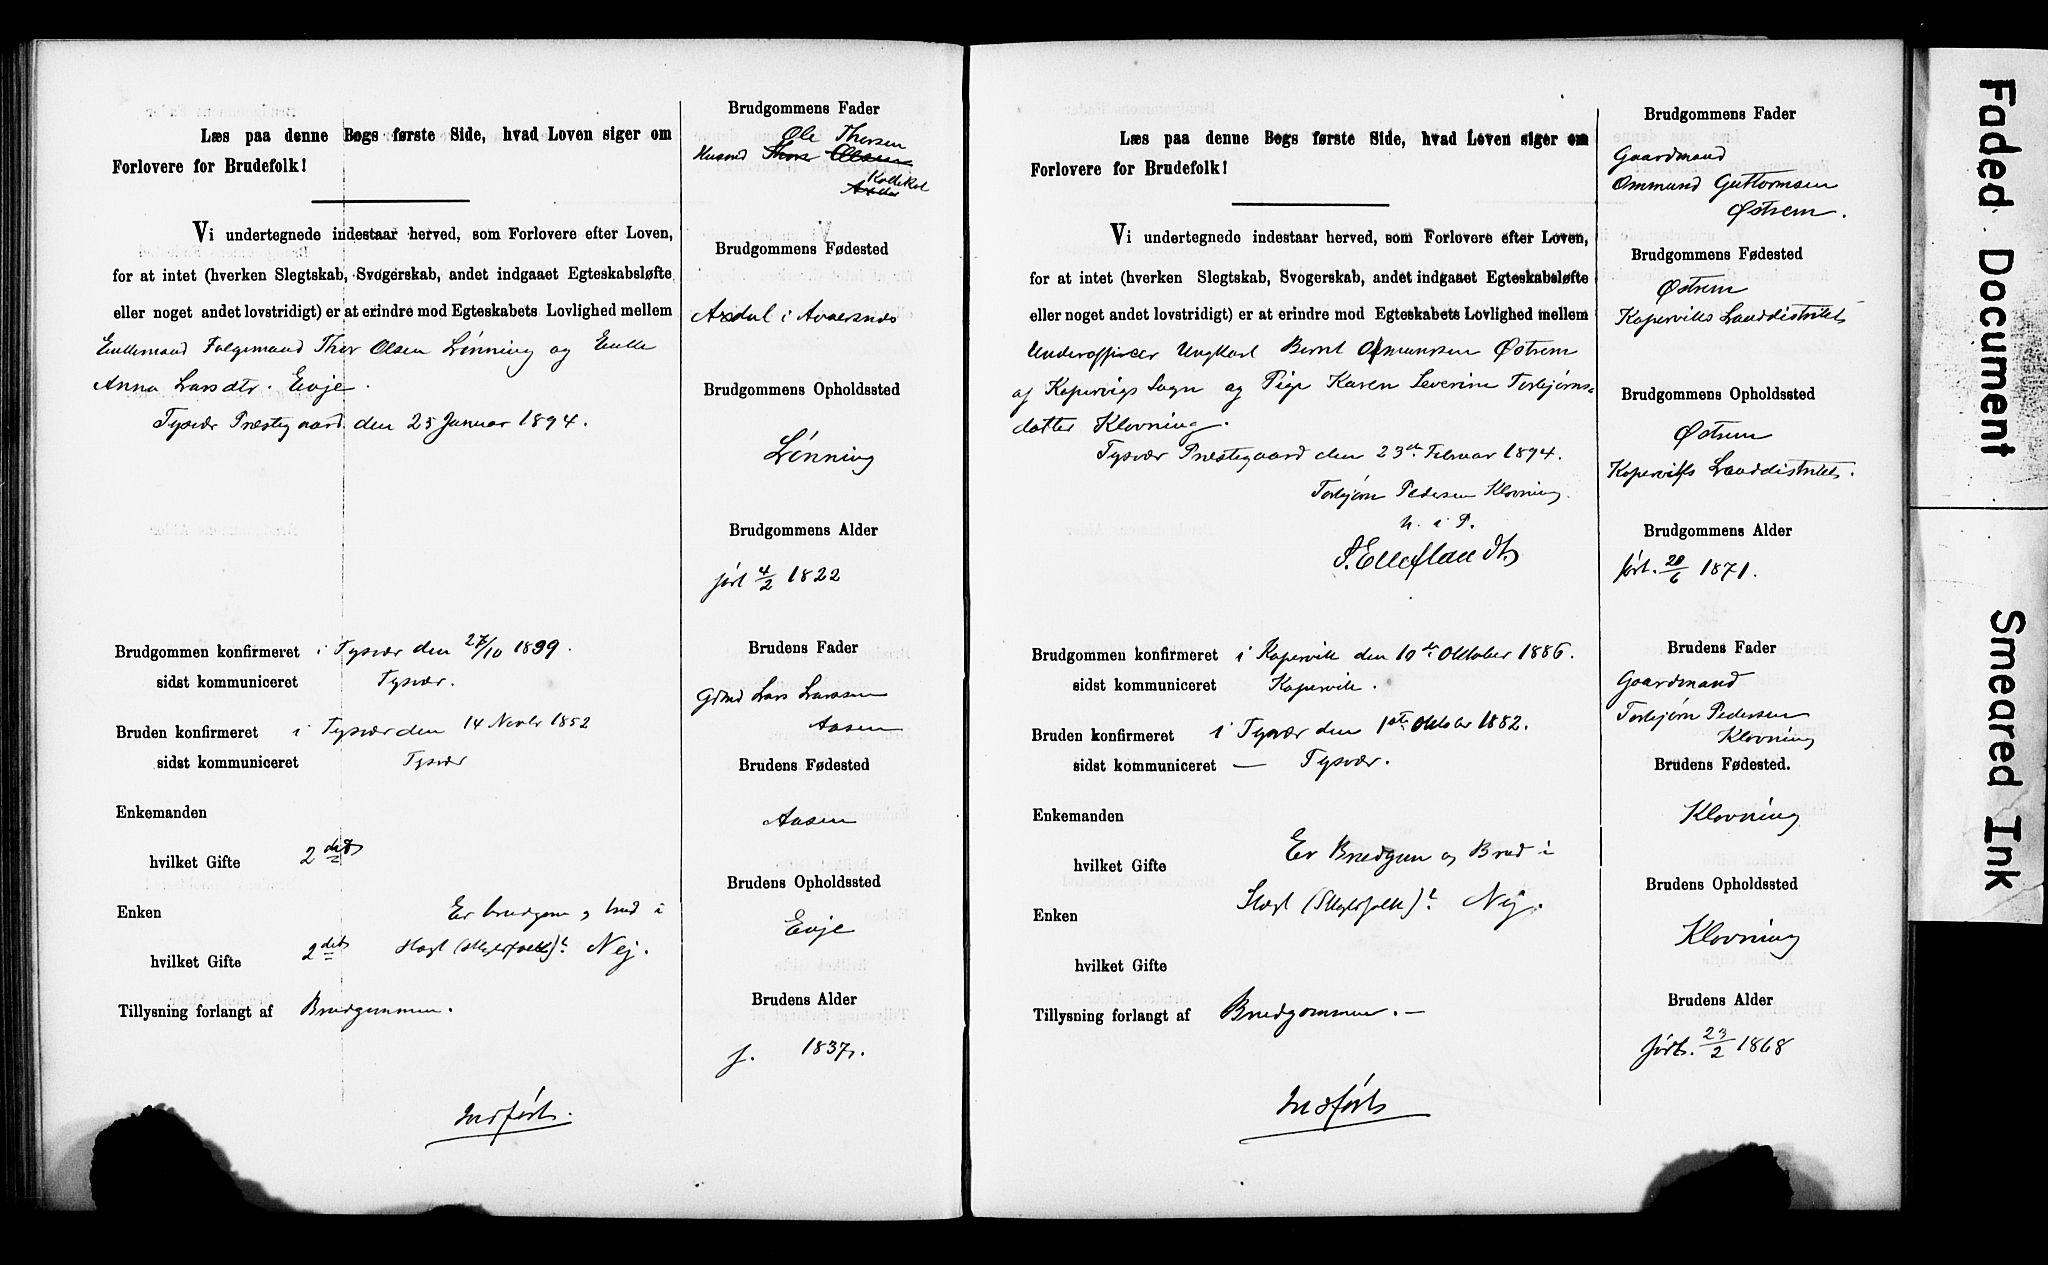 Læs paa denne Bogs første Side, hvad Loven siger om
Forlovere for Brudefolk!
Vi undertegnede indestaar herved, som Forlovere efter Loven,
for at intet (hverken Slegtskab, Svogerskab, andet indgaaet Egteskabsløfte
eller noget andet lovstridigt) er at erindre mod Egteskabets Lovlighed mellem
Enkemand Folgemand Thor Olsen Lønning og Enke
Anna Larsdtr. Evje.
Tysvær Præstegaard den 25 Januar 1894.
Brudgommen konfirmeret i Tysvær den 27/10 1839.
sidst kommuniceret Tysvær.
Bruden konfirmeret i Tysvær den 14 Novbr 1852
sidst kommuniceret Tysvær
Enkemanden
hvilket Gifte 2det
Enken Er brudgom og brud i
hvilket Gifte 2det Slægt (Slegtsfolk)? Nej.
Tillysning forlangt af Brudgommen.
Indført.
Brudgommens Fader
Ole Thorsen
Husmd Thor Olsen
Kolleskol
Brudgommens Fødested
Axdal i Avaersnæs
Brudgommens Opholdssted
Lønning
Brudgommens Alder
født 4/2 1822
Brudens Fader
Gdmd Lars Larssen
Aasen
Brudens Fødested
Aasen
Brudens Opholdssted
Evje
Brudens Alder
f. 1837.
Læs paa denne Bogs første Side, hvad Loven siger om
Forlovere for Brudefolk!
Vi undertegnede indestaar herved, som Forlovere efter Loven,
for at intet (hverken Slegtskab, Svogerskab, andet indgaaet Egteskabsløfte
eller noget andet lovstridigt) er at erindre mod Egteskabets Lovlighed mellem
Underofficer Ungkarl Bernt Ommundsen Østrem
af Kopervigs Sogn og Pige Karen Severine Torbjørns-
datter Klovning.
Tysvær Præstegaard den 23de Februar 1894.
Torbjørn Pedersen Klovning
m. i P.
S. Elleflaadt
Brudgommen konfirmeret i Kopervik den 10de Oktober 1886.
sidst kommuniceret Kopervik.
Bruden konfirmeret i Tysvær den 1ste Oktober 1882.
sidst kommuniceret — Tysvær.
Enkemanden
hvilket Gifte Er Brudgom og Brud i
Enken Slægt (Slegtsfolk)? Nej.
hvilket Gifte
Tillysning forlangt af Brudgommen. —
Indført
Brudgommens Fader
Gaardmand
Ommund Guttormsen
Østrem.
Brudgommens Fødested
Østrem
Koperviks Landdistrikt
Brudgommens Opholdssted
Østrem
Koperviks Landdistrikt.
Brudgommens Alder
født. 20/6 1871.
Brudens Fader
Gaardmand
Torbjørn Pedersen
Klovning
Brudens Fødested.
Klovning
Brudens Opholdssted
Klovning
Brudens Alder
født. 23/2 1868
Faded Document
Smeared Ink